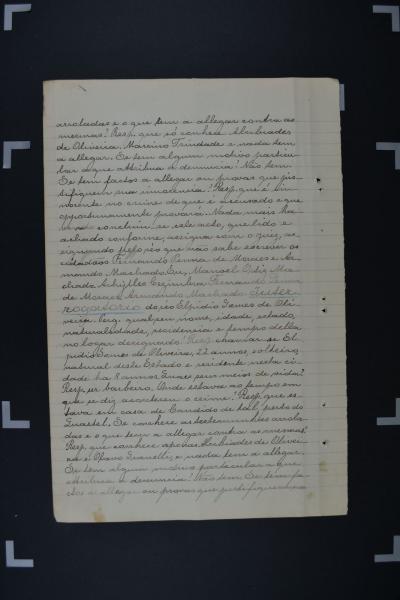 arroladas e o que tem a allegar contra as
mesmas? Resp. que só conhece Alcibiades
de Oliveira, Marcino Trindade e nada tem
a allegar. Se tem algum motivo particu-
lar a que attribua a denuncia? Não tem.
Se tem factos a allegar ou provas que jus-
tifiquem sua innocencia? Resp. que é in-
nocente no crime de que é accusado e que
opportunamente provará. Nada mais ha-
vendo conclúiu-se este auto, que lido e
achado conforme, assigna com o Juiz, as-
signando pelo réo que não sabe escrever os
cidadãos Fernando Penna de Moraes e Ar-
mando Machado. Eu, Manoel Ma-
chado, o escrevi. Fernando Penna
de Moraes. Armando Machado. Inter-
rogatorio do réo Elpidio Gomes de Oli-
veira. Perg. qual seu nome, idade, estado,
naturalidade, residencia e tempo della
no logar designado? Resp. chamar-se El-
pidio Gomes de Oliveira, 22 annos, solteiro,
natural deste Estado e residente nesta ci-
dade ha 8 annos. Quaes seus meios de vida?
Resp. ser barbeiro. Onde estava ao tempo em
que se diz aconteceu o crime? Resp. que es-
tava em casa de Candido de tal, perto do
Quartel. Se conhece as testemunhas arrola-
das e o que tem a allegar contra as mesmas?
Resp. que conhece apenas Alcibiades de Olivei-
ra e e nada tem a allegar.
Se tem algum motivo particular a que
attribua a denuncia? Não tem. Se tem fa-
ctos a allegar ou provas que justifiquem sua